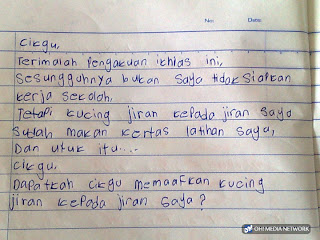 No:
Date
Cikgu,
Terimalah Pengakuan ikhlas ini,
Sesungguhnya bukan saya tidak siapkan
kerja sekolah,
Tetapi kucing jiran kepada jiran saya
Sudah makan kertas latihan saya,
Dan utuk itu....
Cikgu,
Dapatkah cikgu memaafkan kucing
jiran kepada jiran saya?
OH! MEDIA NETWORK